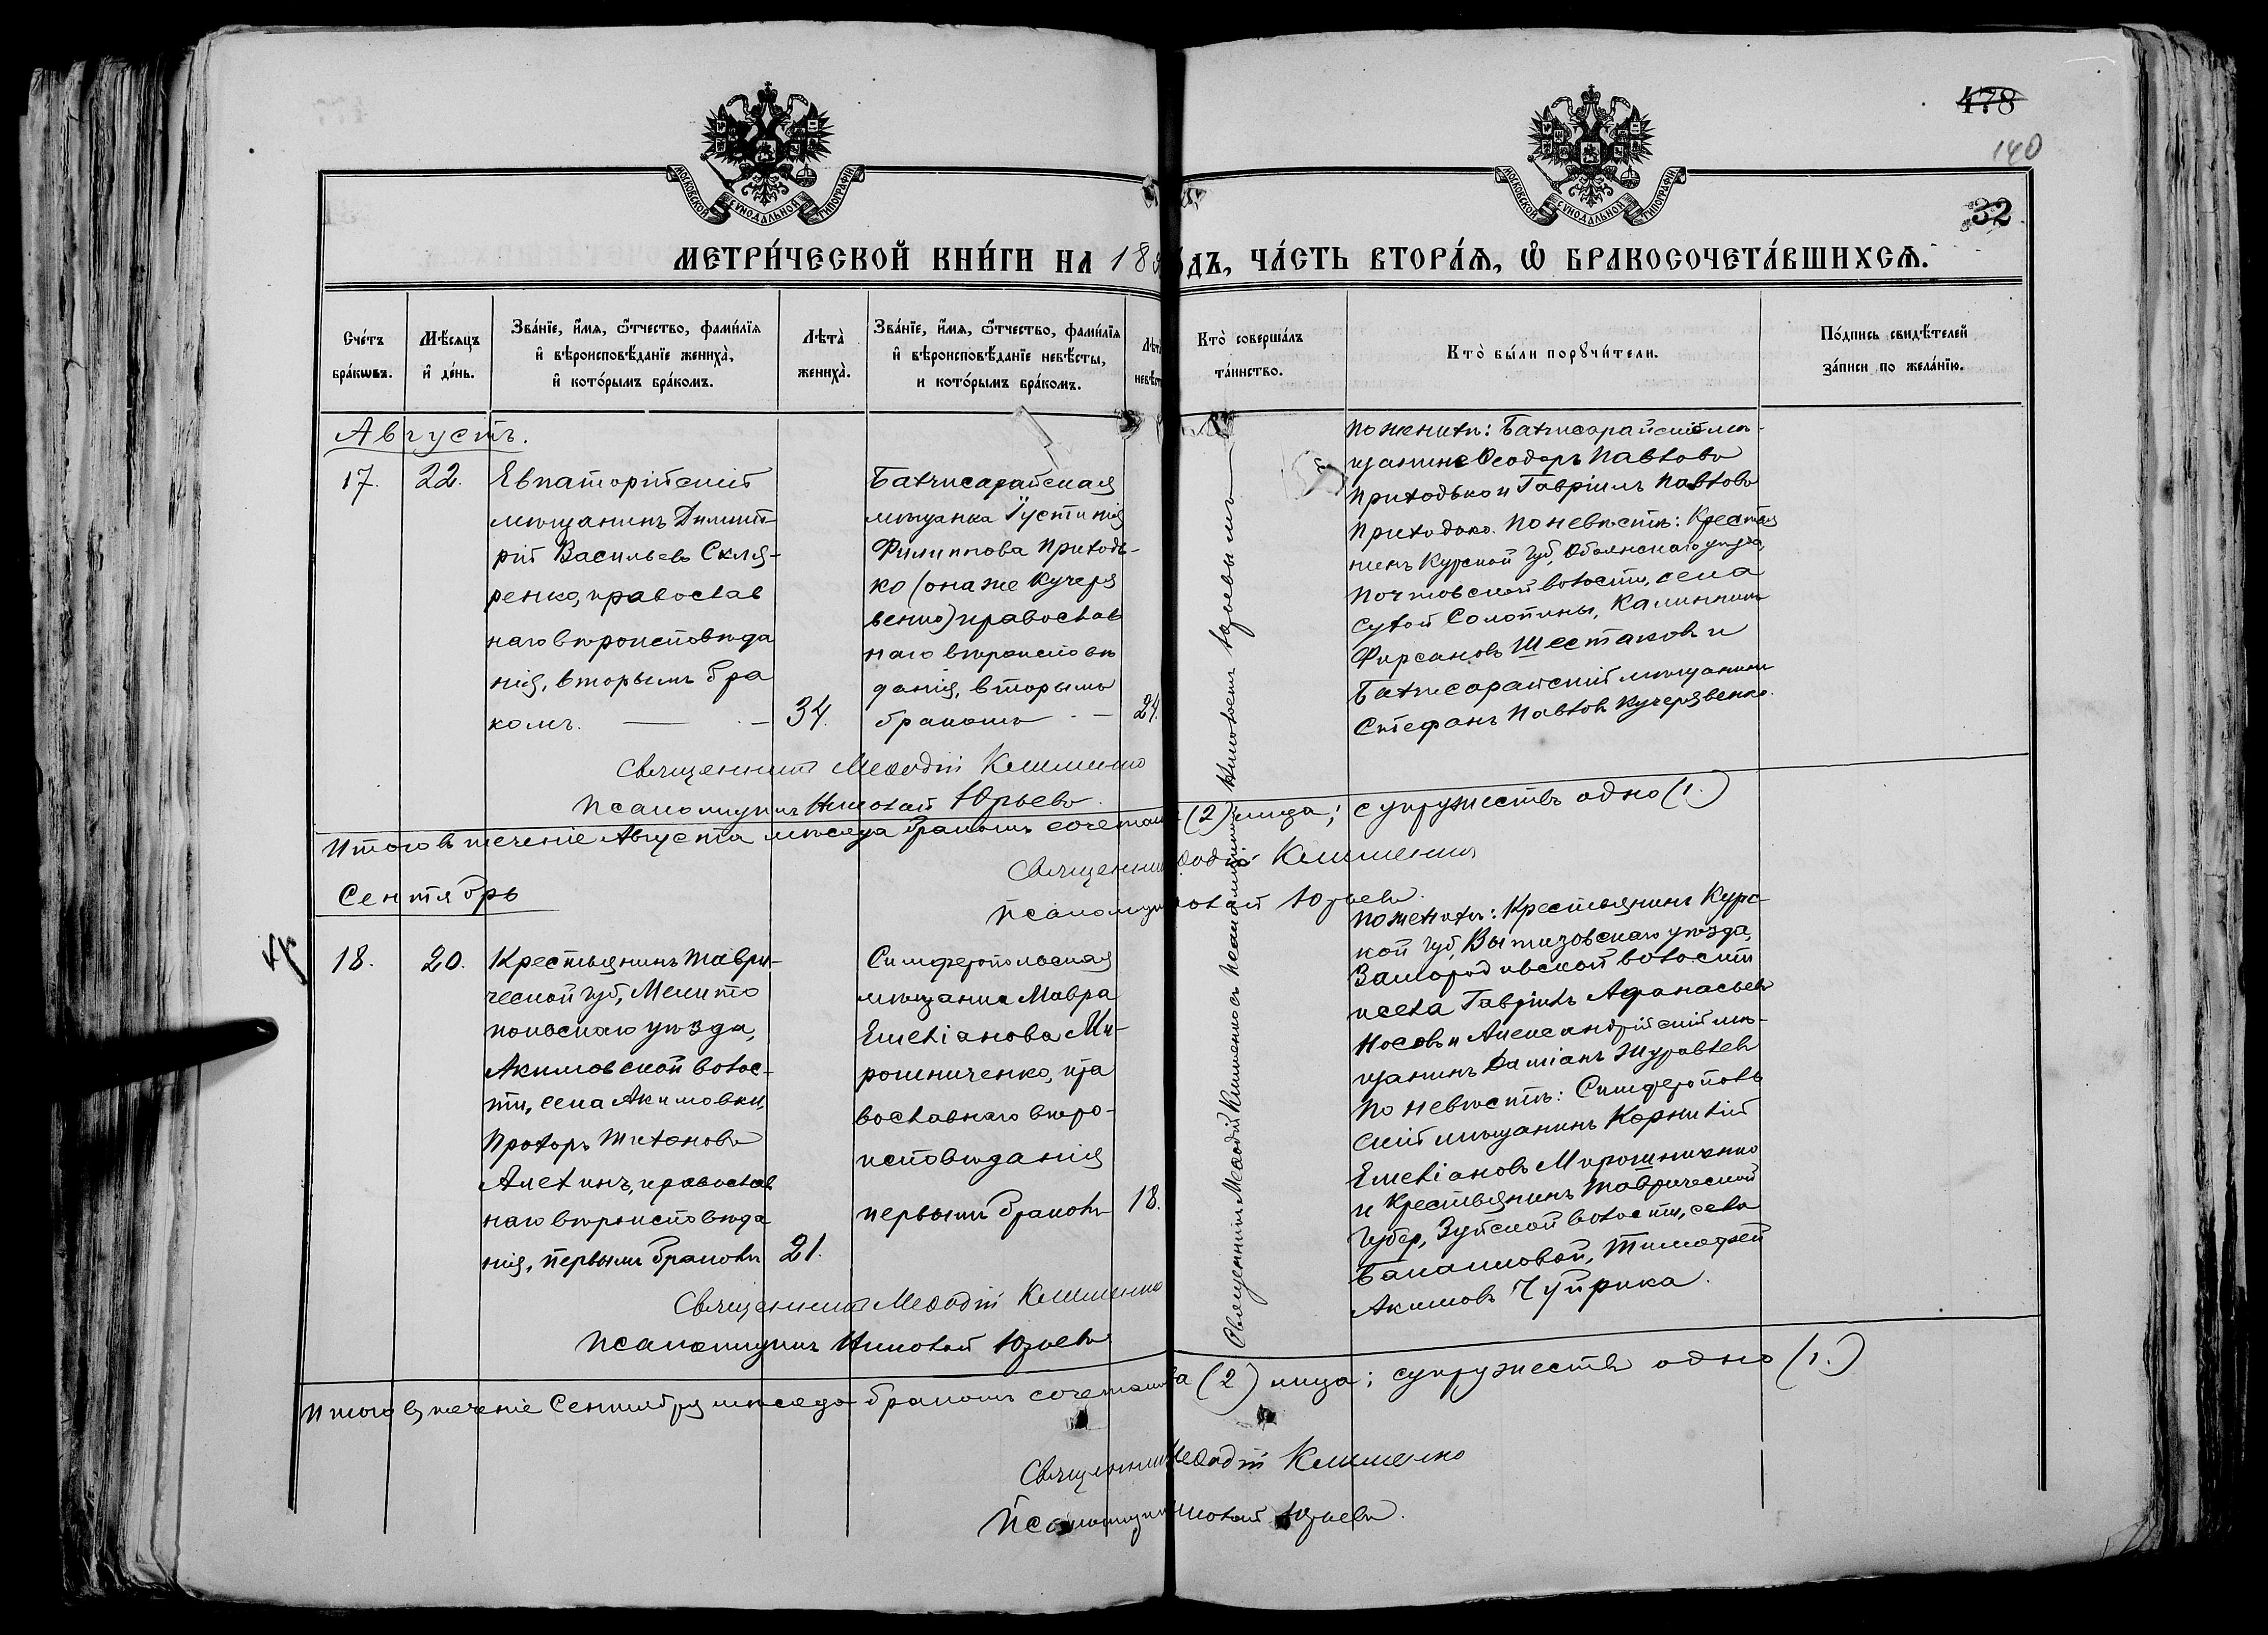 478
140
32
МОСКОВСКОЙ СѴНОДАЛЬНОЙ ТИПОГРАФІИ
МОСКОВСКОЙ СѴНОДАЛЬНОЙ ТИПОГРАФІИ
МЕТРИ́ЧЕСКОЙ КНИ́ГИ НА 18
ДЪ, ЧА́СТЬ ВТОРА́Я, Ѿ БРАКОСОЧЕТА́ВШИХСЯ.
Сче́тъ
бра́кωвъ.
Мѣ́сяцъ
и҆ де́нь.
Зва́нїе, и҆́мя, ѻ҆́тчество, фами́лїя
и҆ вѣроисповѣ́данїе жениха̀,
и҆ кото́рымъ бра́комъ.
Лѣта̀
жениха̀.
Зва́нїе, и҆́мя, ѻ҆́тчество, фами́лїя
и҆ вѣроисповѣ́данїе невѣ́сты,
и кото́рымъ бра́комъ.
Лѣта
невѣс
Кто̀ соверша́лъ
та́инство.
Кто̀ бы́ли порꙋчи́тели.
По́дпись свидѣ́телей
за́писи по жела́нїю.
Августъ.
17.
22.
Евпаторійскій
мѣщанинъ Димит-
рій Васильевъ Скля-
ренко, православ
наго вѣроисповѣда
нія, вторымъ бра
комъ.
34.
Бахчисарайская
мѣщанка Іустинія
Филиппова Приходь-
ко (она же Кучеря
венко) православ
наго вѣроисповѣ
данія, вторымъ
бракомъ
24.
По женихѣ: Бахчисарайскій мѣ-
щанинъ Ѳеодоръ Павловъ
Приходько и Гавріилъ Павловъ
Приходько. По невѣстѣ: Крестья
нинъ Курской губ, Обоянскаго уѣзда,
волости, села
Сухой Солотины, Калинникъ
Фирсановъ Шестаковъ и
Бахчисарайскій мѣщанинъ
Стефанъ Павловъ Кучерявенко.
Священникъ Меѳодій Клименко
Псаломщикъ Николай Юрьевъ.
Итого въ теченіе Августа мѣсяца бракомъ сочетано (2) лица; супружествъ одно (1.)
Священникъ Меѳодій Клименко
Псаломщикъ Николай Юрьевъ.
Священникъ Меѳодій Клименко съ псаломщикомъ Николаемъ Юрьевымъ
Сентябрь
18.
20.
Крестьянинъ Таври-
ческой губ, Мелито
польскаго уѣзда,
Акимовской волос-
ти, села Акимовки,
Прохоръ Тихоновъ
Алехинъ, православ
наго вѣроисповѣда
нія, первымъ бракомъ
21.
Симферопольская
мѣщанка Мавра
Емеліанова Ми-
рошниченко, пра
вославнаго вѣро-
исповѣданія
первымъ бракомъ
18.
По женихѣ: Крестьянинъ Курс-
кой губ, уѣзда,
волости
села Гавріилъ Афанасьевъ
Носовъ и Александрійскій мѣ-
щанинъ Даміанъ Журавлевъ
По невѣстѣ: Симферополь
скій мѣщанинъ Корнилій
Емеліановъ Мирошниченко
и Крестьянинъ Таврической
губер, Зуйской волости, села
Тимофей
Акимовъ Чуприка.
Священникъ Меѳодій Клименко
Псаломщикъ Николай Юрьевъ
Итого въ теченіе Сентября мѣсяца бракомъ сочетано (2) лица; супружествъ одно (1.)
Священникъ Меѳодій Клименко
Псаломщикъ Николай Юрьевъ.